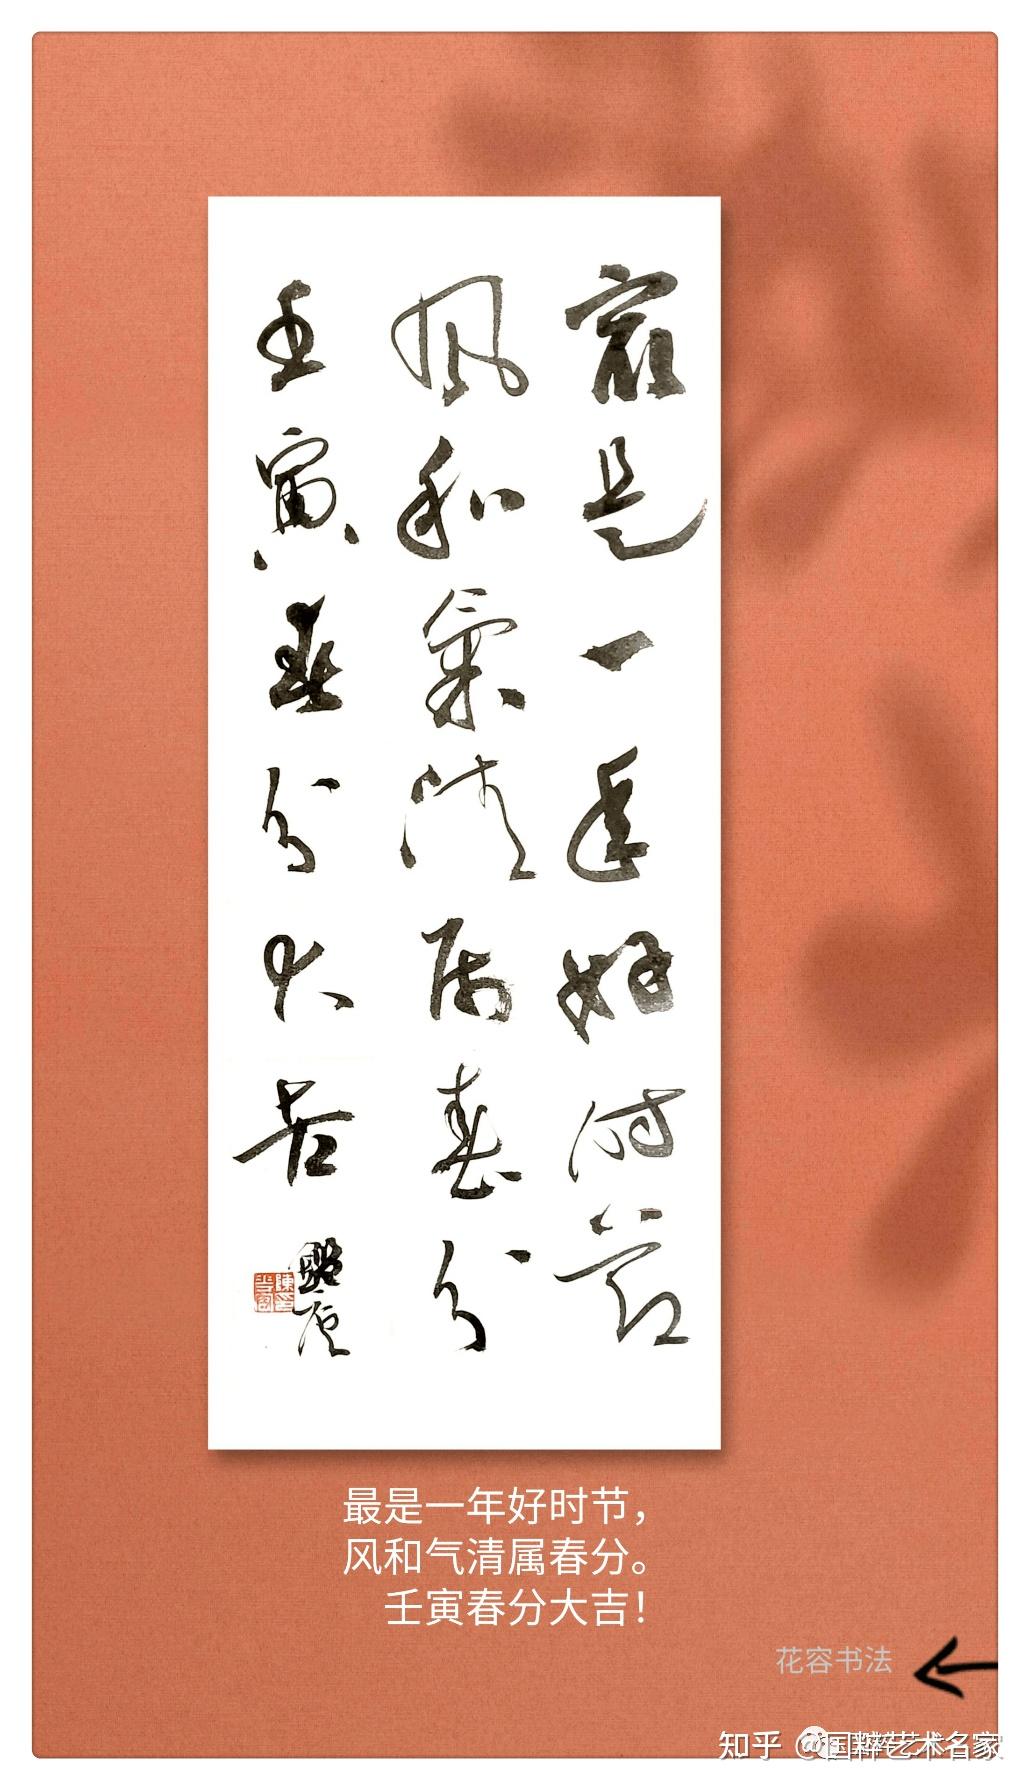 最是一年好时节
风和氣清属春分
壬寅春分大吉
最是一年好时节，
风和气清属春分。
壬寅春分大吉！
花容书法
知乎 @国粹艺术名家